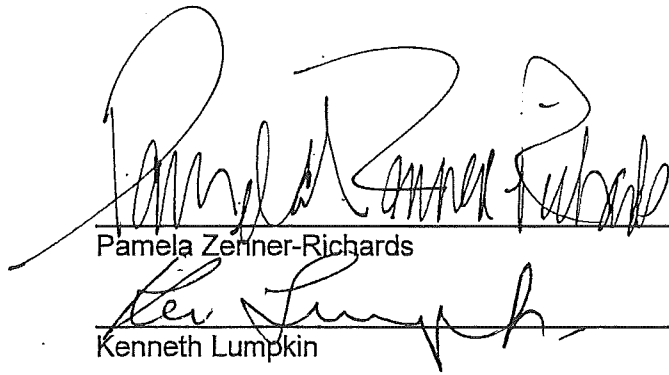 Pamela Zenner-Richards
Pamela Zenner-Richards
Ken Lumpkin
Kenneth Lumpkin